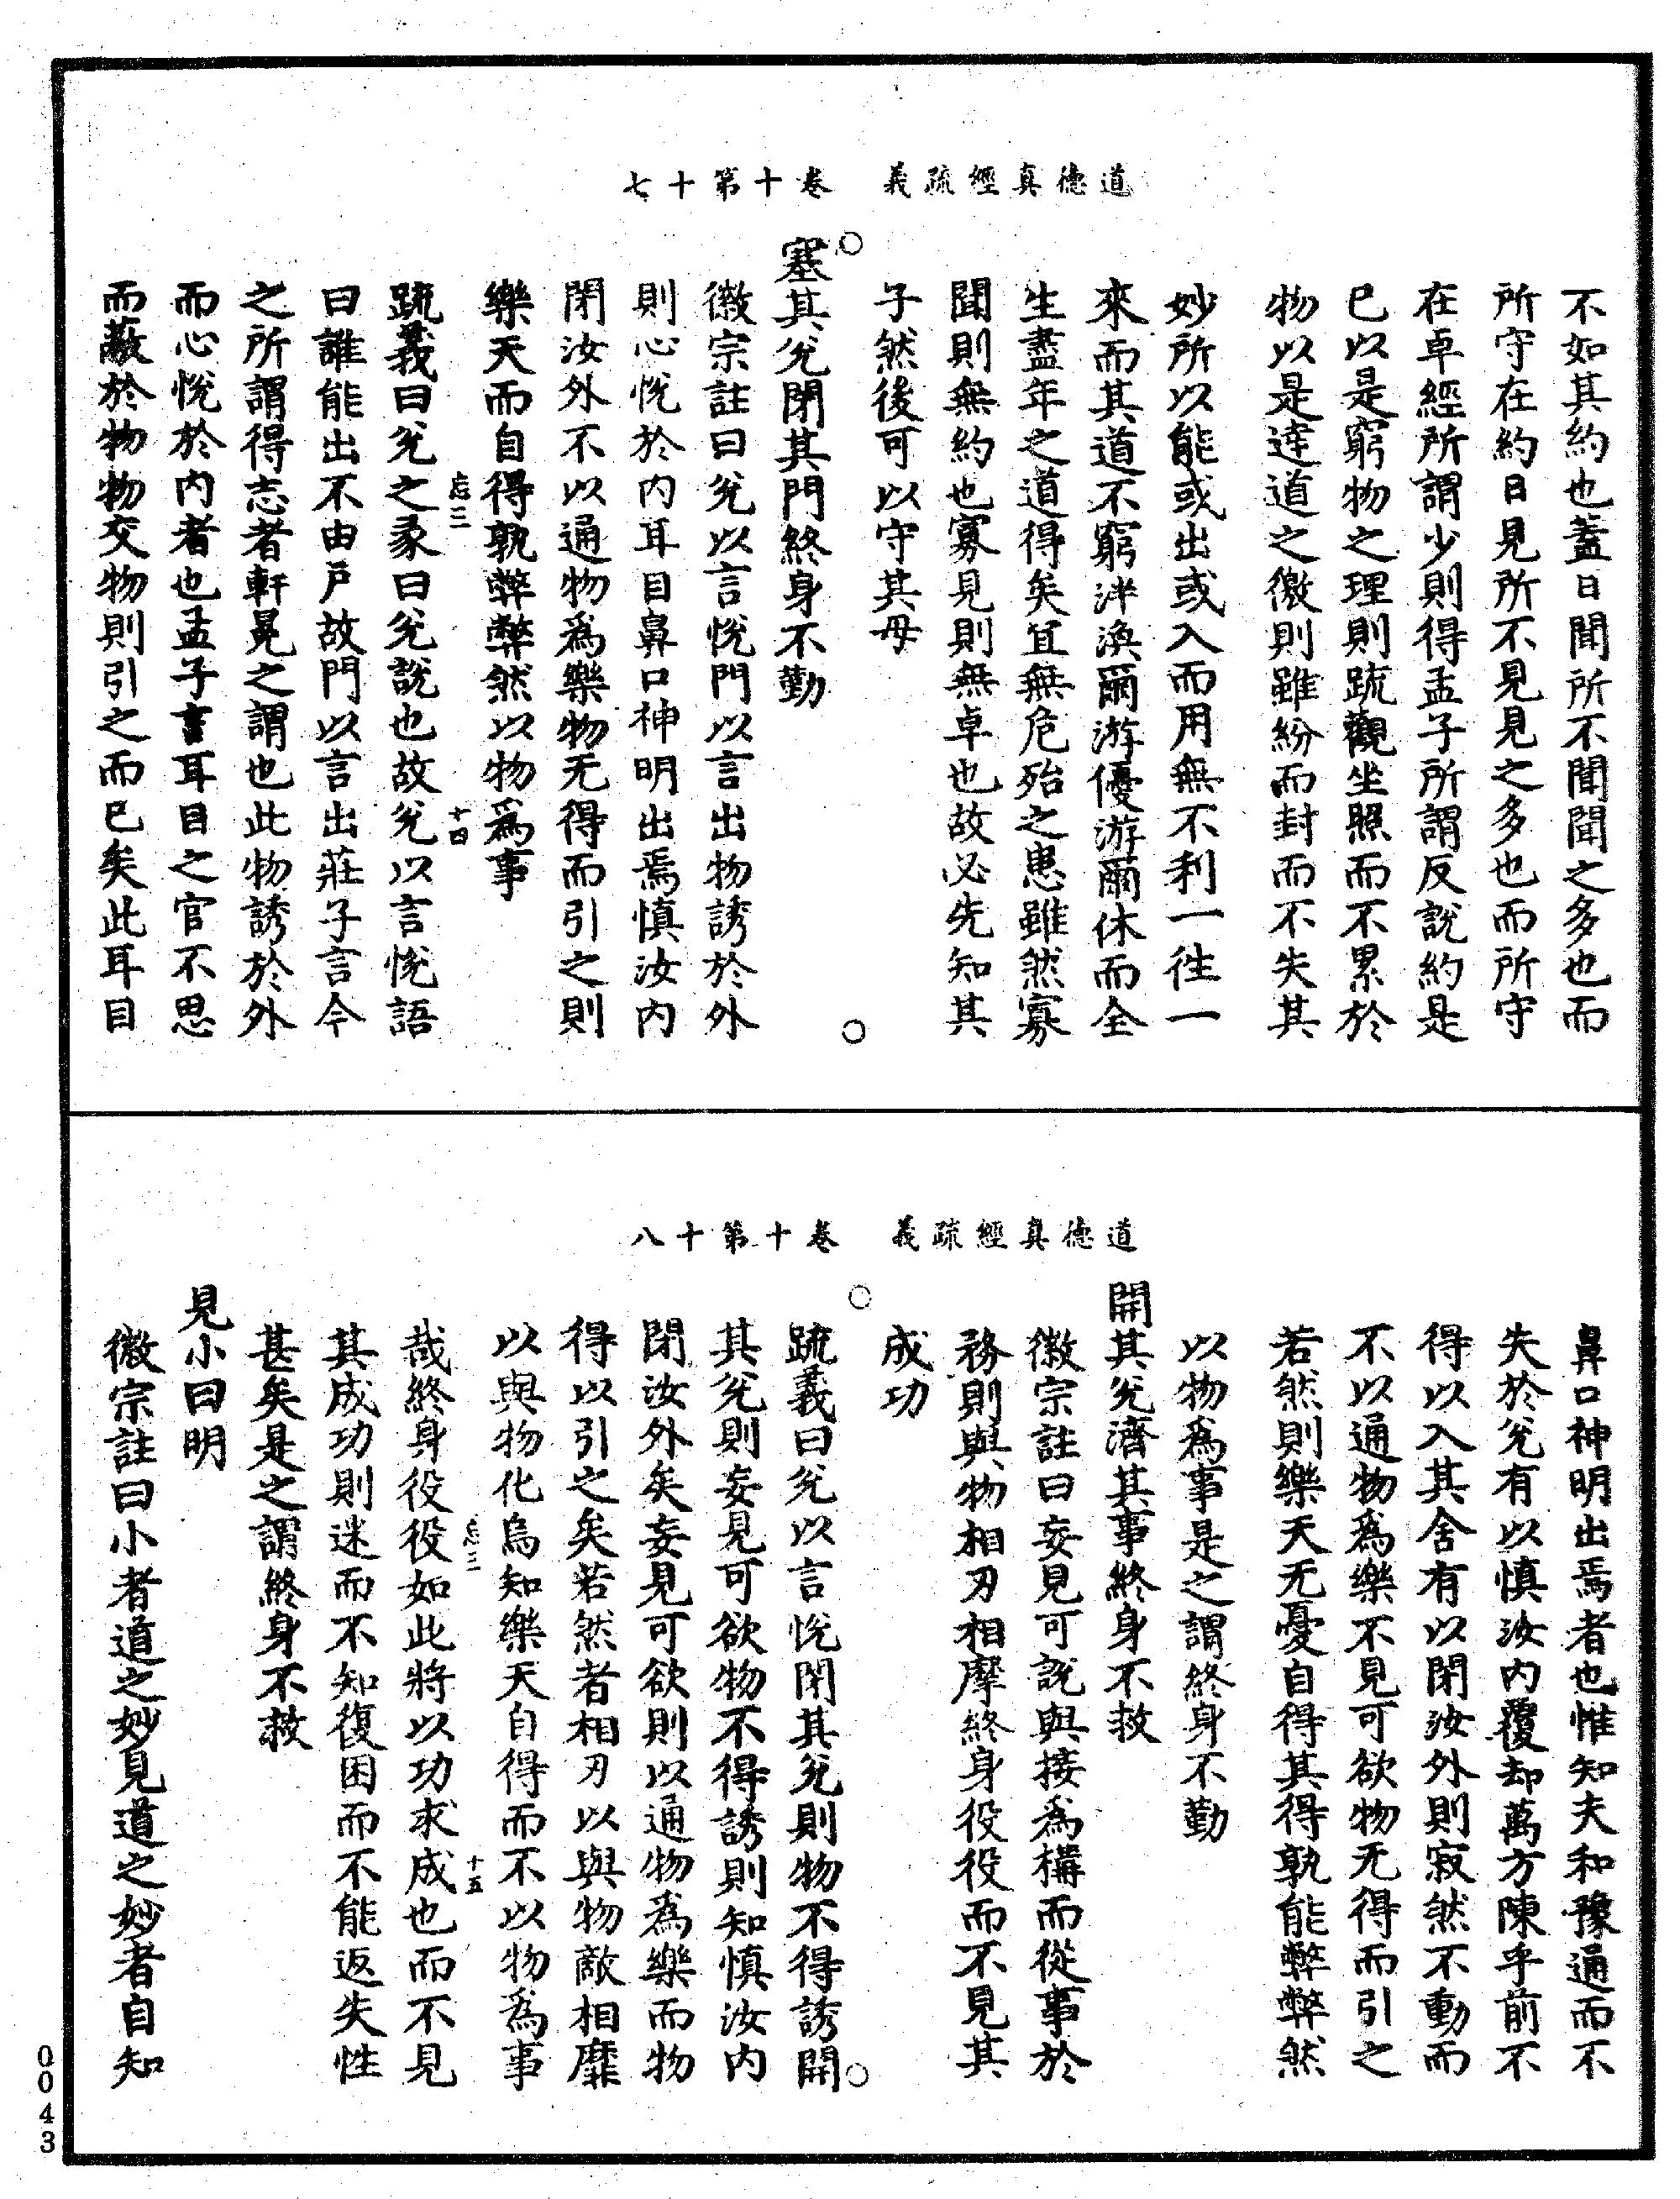 道德真經疏義　卷十第十七
不如其約也蓋日聞所不聞聞之多也而
所守在約日見所不見見之多也而所守
在卓經所謂少則得孟子所謂反說約是
已以是窮物之理則疏觀坐照而不累於
物以是逹道之徼則雖紛而封而不失其
妙所以能或出或入而用無不利一往一
來而其道不窮泮渙爾游優游爾休而全
生盡年之道得矣宜無危殆之患雖然寡
聞則無約也寡見則無卓也故必先知其
子然後可以守其母
塞其兌閉其門終身不勤
徽宗註曰兌以言悅門以言出物誘於外
則心悅於內耳目鼻口神明出焉慎汝內
閉汝外不以通物爲樂物无得而引之則
樂天而自得孰弊弊然以物爲事
忘三　十四
疏義曰兌之彖曰兌說也故兌以言悅語
曰誰能出不由戶故門以言出莊子言今
之所謂得志者軒冕之謂也此物誘於外
而心悅於內者也孟子言耳目之官不思
而蔽於物物交物則引之而已矣此耳目
道德真經疏義　卷十第十八
鼻口神明出焉者也惟知夫和豫通而不
失於兌有以慎汝內覆却萬方陳乎前不
得以入其舍有以閉汝外則寂然不動而
不以通物爲樂不見可欲物无得而引之
若然則樂天无憂自得其得孰能弊弊然
以物爲事是之謂終身不勤
開其兌濟其事終身不救
徽宗註曰妄見可說與接爲構而從事於
務則與物相刃相摩終身役役而不見其
成功
疏義曰兌以言悅閉其兌則物不得誘開
其兌則妄見可欲物不得誘則知慎汝內
閉汝外矣妄見可欲則以通物爲樂而物
得以引之矣若然者相刃以與物敵相靡
以與物化烏知樂天自得而不以物爲事
忘三　十五
哉終身役役如此將以功求成也而不見
其成功則迷而不知復困而不能返失性
甚矣是之謂終身不救
見小曰明
徽宗註曰小者道之妙見道之妙者自知
0043